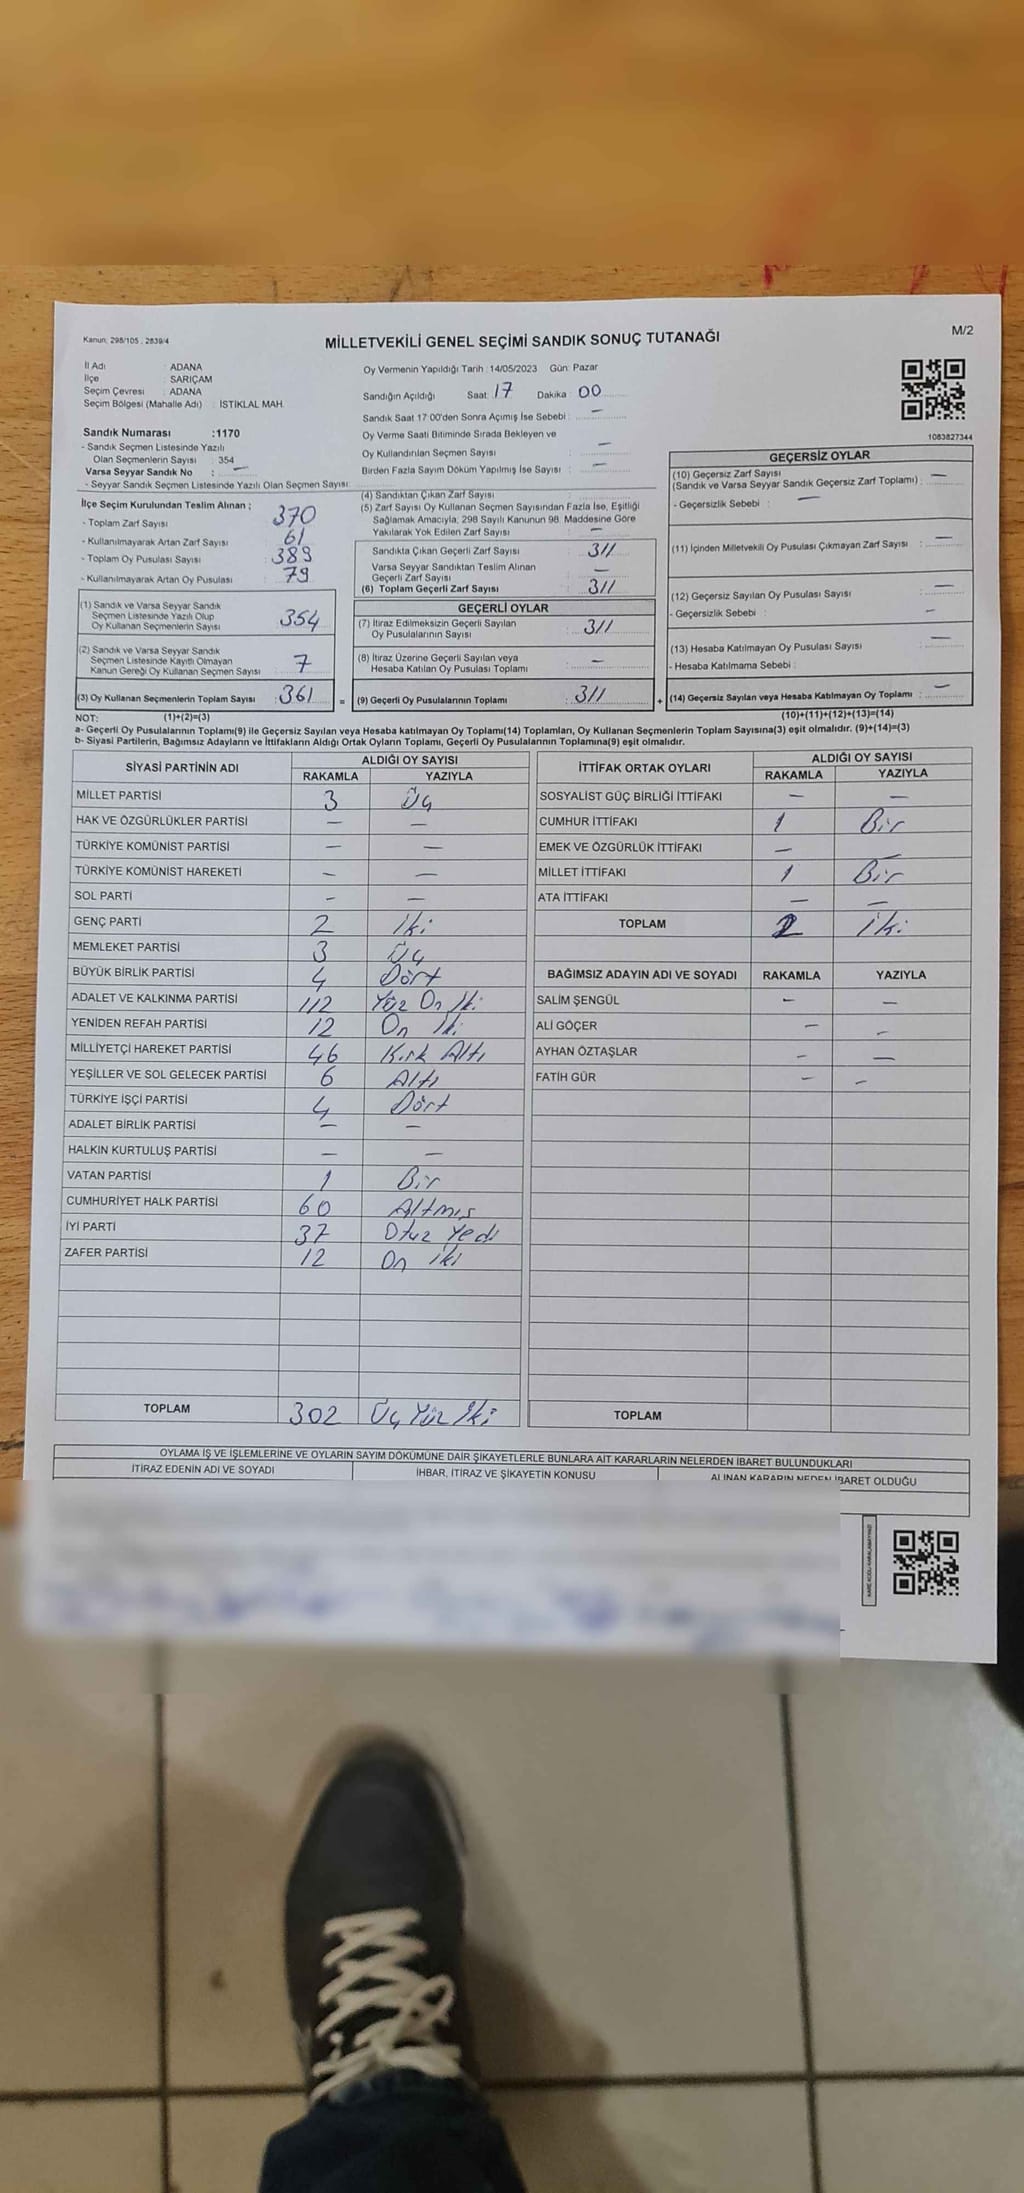 Kanun: 298/105, 2839/4
MİLLETVEKİLİ GENEL SEÇİMİ SANDIK SONUÇ TUTANAĞI
M/2
İl Adı : ADANA
İlçe : SARIÇAM
Seçim Çevresi : ADANA
Seçim Bölgesi (Mahalle Adı) : İSTİKLAL MAH.
Sandık Numarası :1170
- Sandık Seçmen Listesinde Yazılı
Olan Seçmenlerin Sayısı : 354
Varsa Seyyar Sandık No : —
- Seyyar Sandık Seçmen Listesinde Yazılı Olan Seçmen Sayısı:
Oy Vermenin Yapıldığı Tarih :14/05/2023 Gün: Pazar
Sandığın Açıldığı Saat: 17 Dakika : 00
Sandık Saat 17:00'den Sonra Açımış İse Sebebi : —
Oy Verme Saati Bitiminde Sırada Bekleyen ve
Oy Kullandırılan Seçmen Sayısı : —
Birden Fazla Sayım Döküm Yapılmış İse Sayısı : —
1083827344
İlçe Seçim Kurulundan Teslim Alınan ;
- Toplam Zarf Sayısı : 370
- Kullanılmayarak Artan Zarf Sayısı : 61
- Toplam Oy Pusulası Sayısı : 389
- Kullanılmayarak Artan Oy Pusulası : 79
(1) Sandık ve Varsa Seyyar Sandık
Seçmen Listesinde Yazılı Olup
Oy Kullanan Seçmenlerin Sayısı : 354
(2) Sandık ve Varsa Seyyar Sandık
Seçmen Listesinde Kayıtlı Olmayan
Kanun Gereği Oy Kullanan Seçmen Sayısı : 7
(3) Oy Kullanan Seçmenlerin Toplam Sayısı : 361
(4) Sandıktan Çıkan Zarf Sayısı :
(5) Zarf Sayısı Oy Kullanan Seçmen Sayısından Fazla İse, Eşitliği
Sağlamak Amacıyla; 298 Sayılı Kanunun 98. Maddesine Göre
Yakılarak Yok Edilen Zarf Sayısı : —
Sandıkta Çıkan Geçerli Zarf Sayısı : 311
Varsa Seyyar Sandıktan Teslim Alınan
Geçerli Zarf Sayısı : —
(6) Toplam Geçerli Zarf Sayısı : 311
GEÇERLİ OYLAR
(7) İtiraz Edilmeksizin Geçerli Sayılan
Oy Pusulalarının Sayısı : 311
(8) İtiraz Üzerine Geçerli Sayılan veya
Hesaba Katılan Oy Pusulası Toplamı : —
= (9) Geçerli Oy Pusulalarının Toplamı : 311
GEÇERSİZ OYLAR
(10) Geçersiz Zarf Sayısı
(Sandık ve Varsa Seyyar Sandık Geçersiz Zarf Toplamı) : —
- Geçersizlik Sebebi : —
(11) İçinden Milletvekili Oy Pusulası Çıkmayan Zarf Sayısı : —
(12) Geçersiz Sayılan Oy Pusulası Sayısı : —
- Geçersizlik Sebebi : —
(13) Hesaba Katılmayan Oy Pusulası Sayısı : —
- Hesaba Katılmama Sebebi :
+ (14) Geçersiz Sayılan veya Hesaba Katılmayan Oy Toplamı : —
NOT: (1)+(2)=(3)
(10)+(11)+(12)+(13)=(14)
a- Geçerli Oy Pusulalarının Toplamı(9) ile Geçersiz Sayılan veya Hesaba katılmayan Oy Toplamı(14) Toplamları, Oy Kullanan Seçmenlerin Toplam Sayısına(3) eşit olmalıdır. (9)+(14)=(3)
b- Siyasi Partilerin, Bağımsız Adayların ve İttifakların Aldığı Ortak Oyların Toplamı, Geçerli Oy Pusulalarının Toplamına(9) eşit olmalıdır.
SİYASİ PARTİNİN ADI ALDIĞI OY SAYISI
RAKAMLA YAZIYLA
MİLLET PARTİSİ 3 Üç
HAK VE ÖZGÜRLÜKLER PARTİSİ — —
TÜRKİYE KOMÜNİST PARTİSİ — —
TÜRKİYE KOMÜNİST HAREKETİ — —
SOL PARTİ — —
GENÇ PARTİ 2 İki
MEMLEKET PARTİSİ 3 Üç
BÜYÜK BİRLİK PARTİSİ 4 Dört
ADALET VE KALKINMA PARTİSİ 112 Yüz On İki
YENİDEN REFAH PARTİSİ 12 On İki
MİLLİYETÇİ HAREKET PARTİSİ 46 Kırk Altı
YEŞİLLER VE SOL GELECEK PARTİSİ 6 Altı
TÜRKİYE İŞÇİ PARTİSİ 4 Dört
ADALET BİRLİK PARTİSİ — —
HALKIN KURTULUŞ PARTİSİ — —
VATAN PARTİSİ 1 Bir
CUMHURİYET HALK PARTİSİ 60 Altmış
İYİ PARTİ 37 Otuz Yedi
ZAFER PARTİSİ 12 On iki
TOPLAM 302 Üç Yüz İki
İTTİFAK ORTAK OYLARI ALDIĞI OY SAYISI
RAKAMLA YAZIYLA
SOSYALİST GÜÇ BİRLİĞİ İTTİFAKI — —
CUMHUR İTTİFAKI 1 Bir
EMEK VE ÖZGÜRLÜK İTTİFAKI — —
MİLLET İTTİFAKI 1 Bir
ATA İTTİFAKI — —
TOPLAM 2 İki
BAĞIMSIZ ADAYIN ADI VE SOYADI RAKAMLA YAZIYLA
SALİM ŞENGÜL — —
ALİ GÖÇER — —
AYHAN ÖZTAŞLAR — —
FATİH GÜR — —
TOPLAM
OYLAMA İŞ VE İŞLEMLERİNE VE OYLARIN SAYIM DÖKÜMÜNE DAİR ŞİKAYETLERLE BUNLARA AİT KARARLARIN NELERDEN İBARET BULUNDUKLARI
İTİRAZ EDENİN ADI VE SOYADI İHBAR, İTİRAZ VE ŞİKAYETİN KONUSU ALINAN KARARIN NEDEN İBARET OLDUĞU